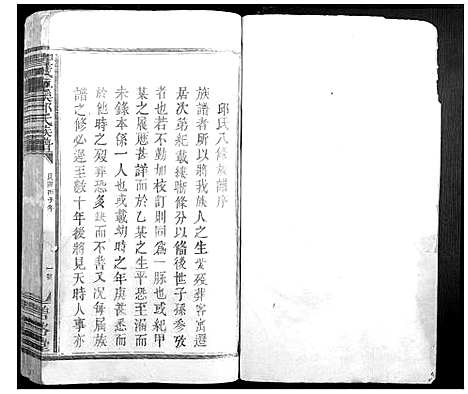 邱氏八修族譜序
族譜者所以將我族人之生娶歿葬客寓遷
居次弟紀載縷晰條分以備後世子孫參攷
者也若不勤加校訂則同為一脉也或紀甲
某之履歷甚詳而於乙某之生平恐至漏而
未錄本係一人也或載幼時之年庚甚悉而
於他時之歿葬恐多缺而不書又況每屬族
譜之修必遲至數十年後將見天時人事亦
邱氏族譜